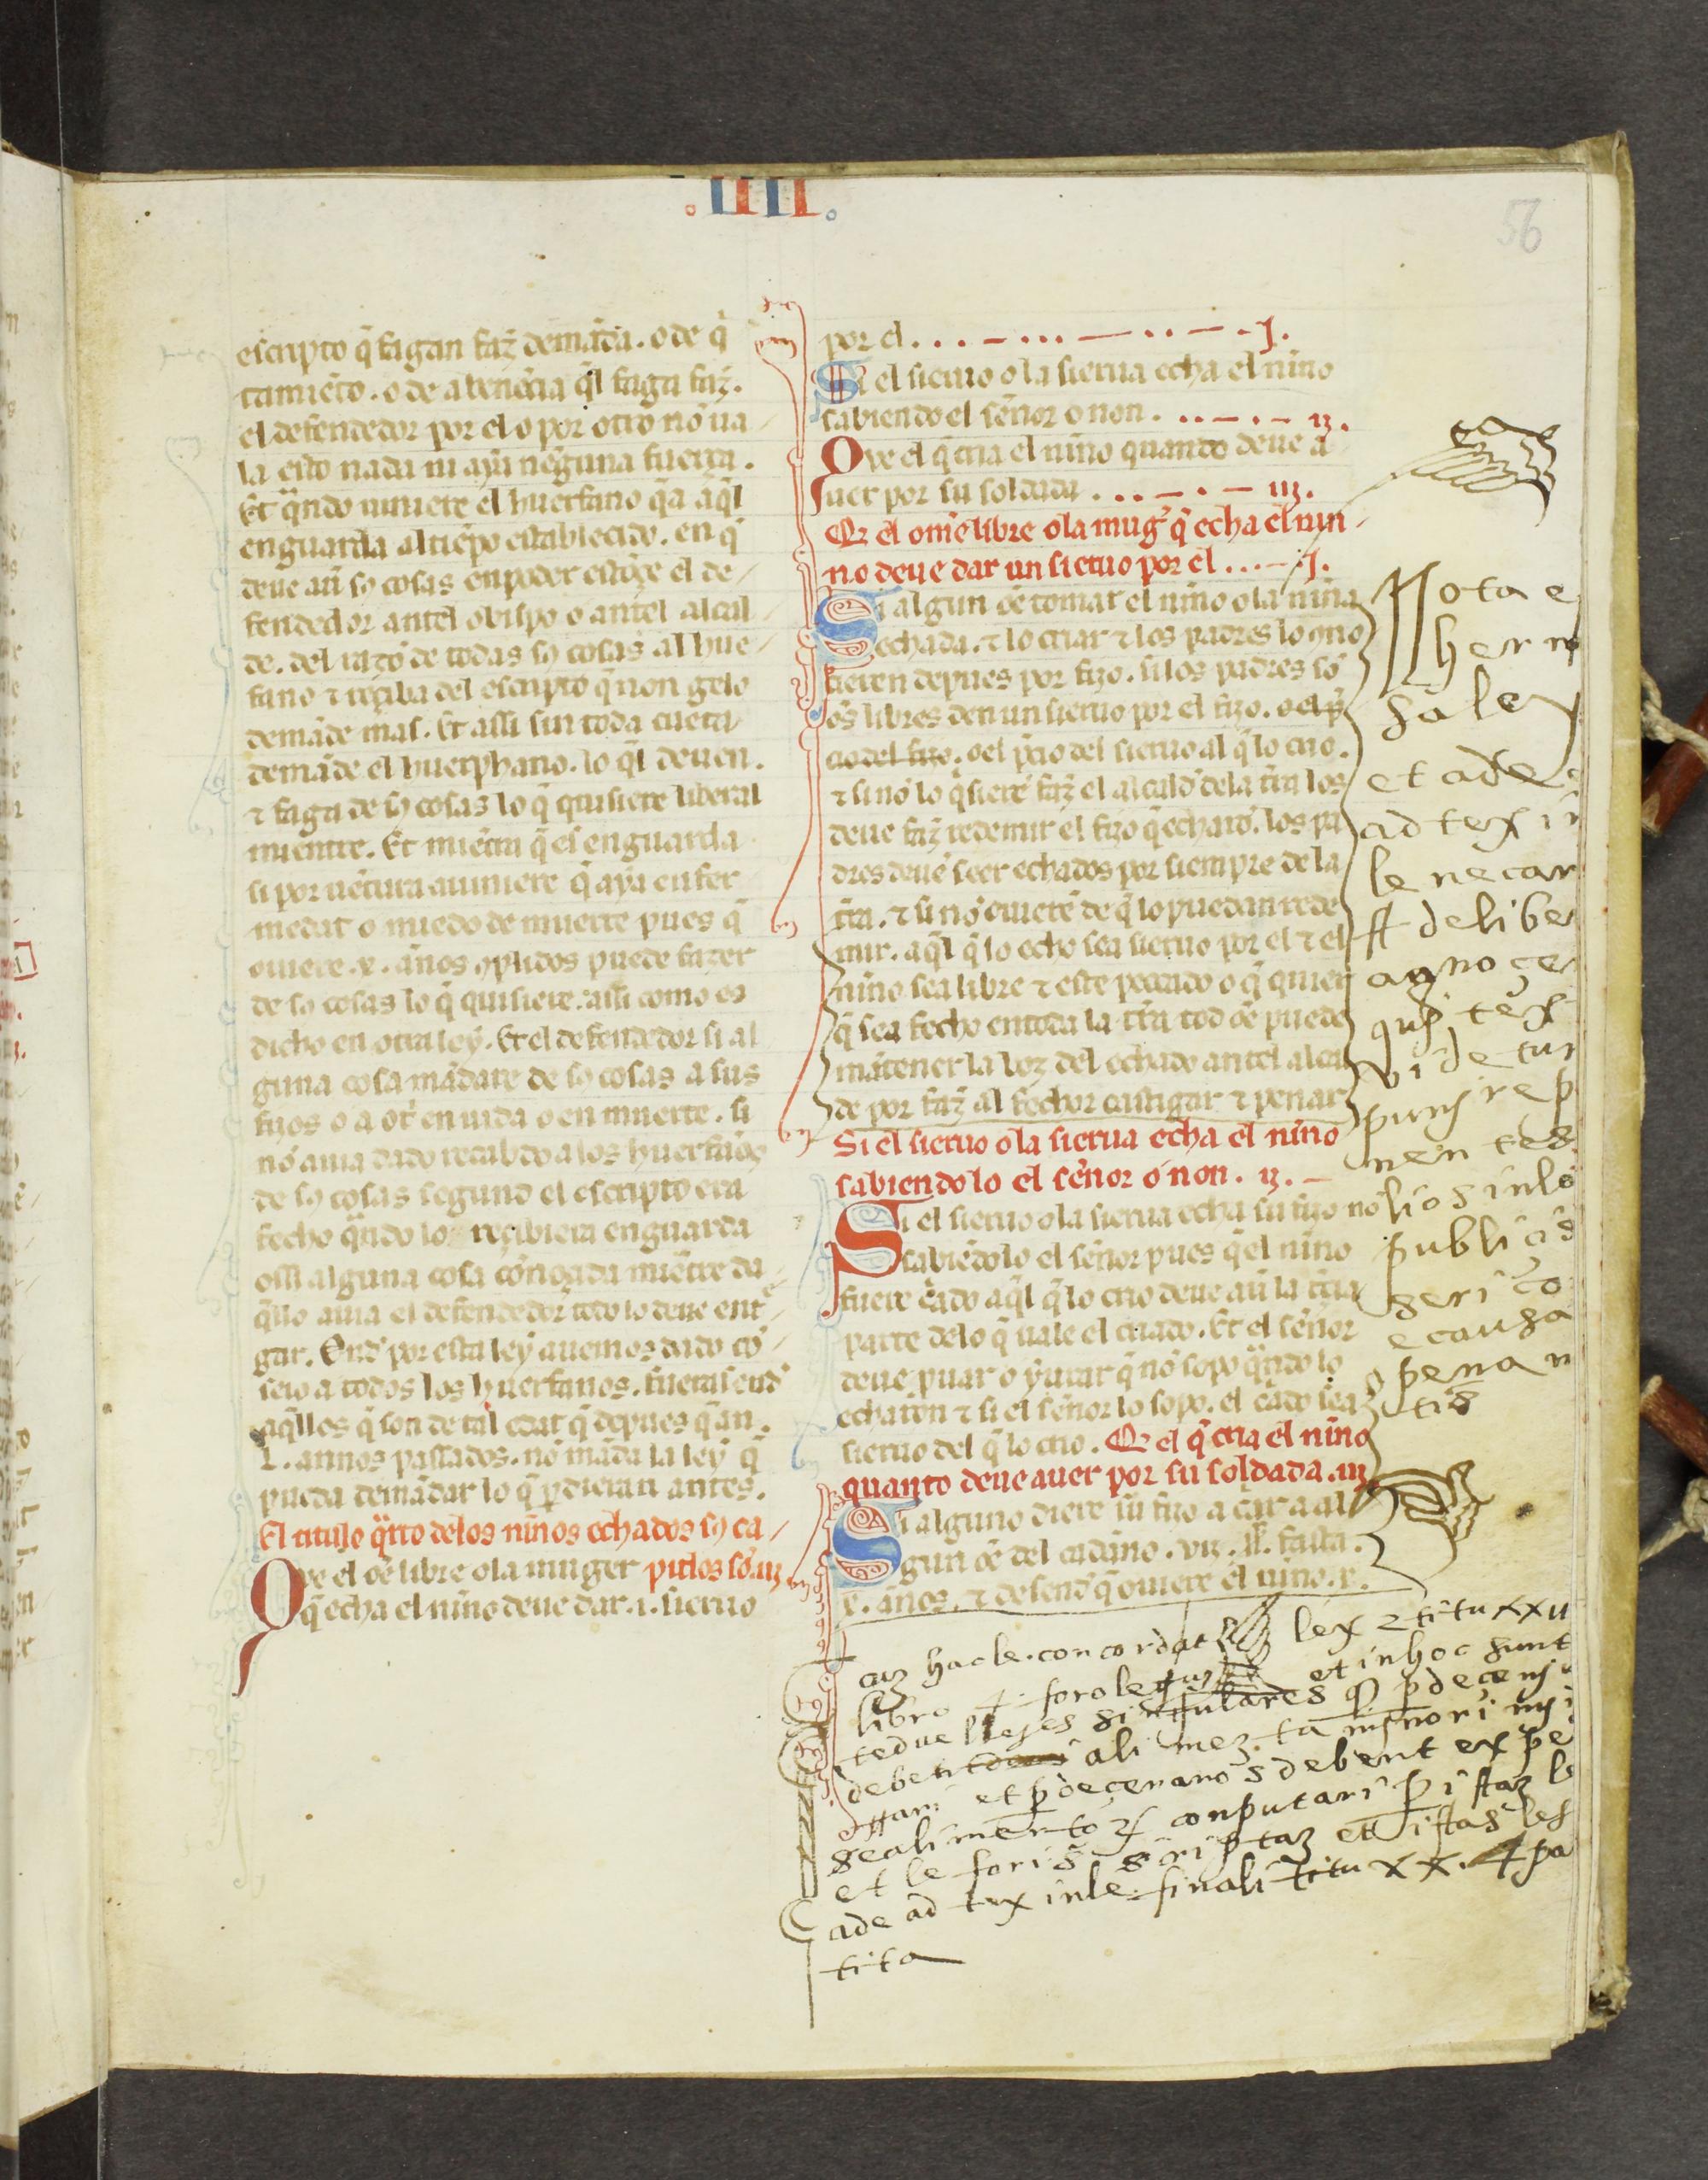 .IIII.
56
escripto q̃ fagan faz̃ demãda. o de q̃
tamiẽto. o de abenẽcia q̃l faga faz̃.
el defendedor por el o por otro nõ ua
la esto nada ni aya neguna fuerça.
Et q̃ndo uiniere el huerfano q̃a aq̃l
en guarda al tiẽpo establecido. en q̃
deue au̾ sꝯ cosas en poder estõçe el de
fendedor antel obispo o antel alcal
de. del razõ de todas sꝯ cosas al hue
fano ⁊ reçiba del escripto q̃ non gelo
demãde mas. Et assi sin toda cueta
demãde el huerphano. lo q̃l deuen.
⁊ faga de sꝯ cosas lo q̃ quisiere liberal
miente. Et miẽtra q̃ es en guarda
si por uẽtura auiniere q̃ aya enfer
medat o miedo de muerte pues q̃
ouiere .x. años ꝯplidos puede fazer
de sꝯ cosas lo q̃ quisiere. assi como es
dicho en otra ley. Et el defendedor si al
guna cosa mãdare de sꝯ cosas a sus
fijos o a ot̾ en uida o en muerte. si
nõ auia dado recabdo a los huerfaños
de sꝯ cosas segund el escripto era
fecho q̃ndo los reçibiera en guarda
o si alguna cosa cõnoçuda miẽtre da
q̃llo auia el defendedor todo lo deue ent̾
gar. End̾ por esta ley auemos dado cõ
seio a todos los huerfanos. fueras end̾
aq̃llos q̃ son de tal edat q̃ depues q̃ an.
L. annos passados. nõ mãda la ley q̃
pueda demãdar lo q̃ ꝑdieran antes.
El titulo q̃rto de los niños echados sꝯ ca
Qve el oẽ libre o la muger pitlos sõ .iij.
q̃ echa el niño deue dar .i. sieruo
por el . . . - ... - .. - - .J.
Si el sieruo o la sierua echa el niño
sabiendo el señor o non. . . - . - ij.
Qve el q̃ cria el niño quanto deue a
uer por su soldada . . . - . - iij.
Q̃ el ome libre o la mug̾ q̃ echa el nin
no deue dar un sieruo por el ... - .J.
Si algun oẽ tomar el niño o la niña
echada. ⁊ lo criar ⁊ los padres lo ꝯno
sieren depues por fijo. si los padres sõ
oẽs libres den un sieruo por el fijo. o el p̃
cio del fijo. o el p̃cio del sieruo al q̃ lo crio.
⁊ si nõ lo q̃siere faz̃ el alcalde de la tr̃a los
deue faz̃ redemir el fijo q̃ echarõ. los pa
dres deuẽ seer echados por siempre de la
tr̃a. ⁊ si nõ ouierẽ de q̃ lo puedan rede
mir. aq̃l q̃ lo echo sea sieruo por el ⁊ el
niño sea libre ⁊ este peccado o q̃ quier
q̃ sea fecho en toda la tr̃a tod oẽ puede
mãtener la boz del echado antel alcal
de por faz̃ al fechor castigar ⁊ penar
Si el sieruo o la sierua echa el niño
sabiendo lo el señor o non. ij. -
Si el sieruo o la sierua echa su fijo no
sabiẽdo lo el señor pues q̃ el niño
fuere c̾ado aq̃l q̃ lo crio deue au̾ la t̾cia
parte de lo q̃ uale el criado. Et el señor
deue ꝓuar o yurar q̃ nõ sopo q̃ndo lo
echaron ⁊ si el señor lo sopo. el c̾ado sea
sieruo del q̃ lo crio. Q̃ el q̃ cria el niño
quanto deue auer por su soldada .iij.
Si alguno diere su fijo a c̾ar a al
gun oẽ del cadaño. viij. fasta.
x. años. ⁊ desend̾ q̃ ouiere el niño .x.
Nota e
her m
sa ley
et ade
ad tex i
le necar
ff de libe
agno ce
qus tex
videtur
punj rep
men tes
lios inlo
publicis
seri co
e causa
penan
tis
cuz hac le. concordat lex 2 titu xxij
libro 4 foro legum et in hoc sunt
te due lleges singulares q̃ p decenj
debent ali mez. ta minori nj
ggari et p decenanos debent expe
se alimento conputari p istaz le
et le foris scriptaz et istas leg
ade ad tex in le finali titu xx. 4 pa
tita